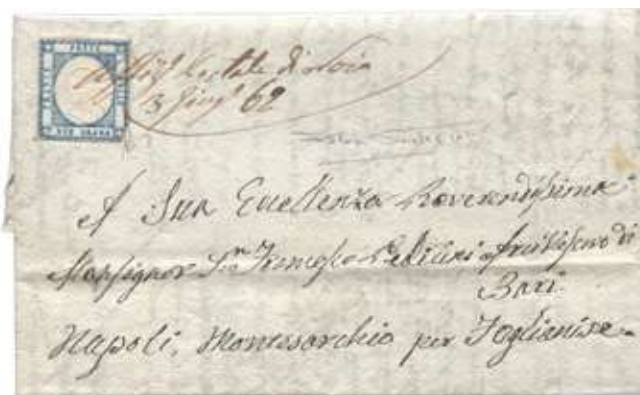 FRANCO
POSTE
BOLLO
DUE GRANA
Postale di Noia
3 Giug.º 62
A Sua Eccellenza Reverendissima
Monsignor D.n Francesco Pedicini Arcivescovo di
Bari
Napoli, Montesarchio per Foglianise